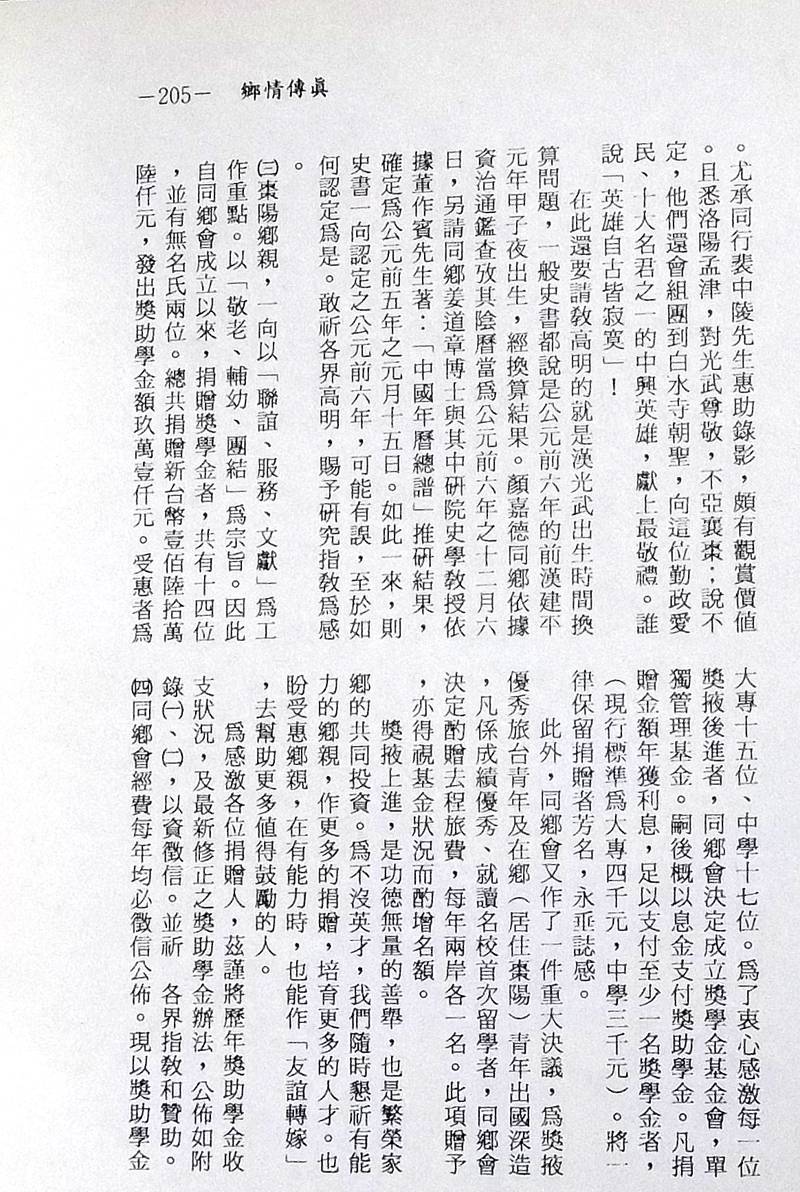 鄉情傳眞
—205—
。尤承同行裴中陵先生惠助錄影，頗有觀賞價値
。且悉洛陽孟津，對光武尊敬，不亞襄棗；說不
定，他們還會組團到白水寺朝聖，向這位勤政愛
民、十大名君之一的中興英雄，獻上最敬禮。誰
說「英雄自古皆寂寞」！
在此還要請敎高明的就是漢光武出生時間換
算問題，一般史書都說是公元前六年的前漢建平
元年甲子夜出生，經換算結果。顏嘉德同鄉依據
資治通鑑查攷其陰曆當爲公元前六年之十二月六
日，另請同鄉姜道章博士與其中硏院史學敎授依
據董作賓先生著：「中國年曆總譜」推硏結果，
確定爲公元前五年之元月十五日。如此一來，則
史書一向認定之公元前六年，可能有誤，至於如
何認定爲是。敢祈各界高明，賜予硏究指敎爲感
。
㈢棗陽鄉親，一向以「聯誼、服務、文獻」爲工
作重點。以「敬老、輔幼、團結」爲宗旨。因此
自同鄉會成立以來，捐贈獎學金者，共有十四位
，並有無名氏兩位。總共捐贈新台幣壹佰陸拾萬
陸仟元，發出獎助學金額玖萬壹仟元。受惠者爲
大專十五位、中學十七位。爲了衷心感激每一位
獎掖後進者，同鄉會決定成立獎學金基金會，單
獨管理基金。嗣後槪以息金支付獎助學金。凡捐
贈金額年獲利息，足以支付至少一名獎學金者，
（現行標準爲大專四千元，中學三千元）。將一
律保留捐贈者芳名，永垂誌感。
此外，同鄉會又作了一件重大決議，爲獎掖
優秀旅台青年及在鄉（居住棗陽）青年出國深造
，凡係成績優秀、就讀名校首次留學者，同鄉會
決定酌贈去程旅費，每年兩岸各一名。此項贈予
，亦得視基金狀況而酌增名額。
獎掖上進，是功德無量的善舉，也是繁榮家
鄉的共同投資。爲不沒英才，我們隨時懇祈有能
力的鄉親，作更多的捐贈，培育更多的人才。也
盼受惠鄉親，在有能力時，也能作「友誼轉嫁」
，去幫助更多値得鼓勵的人。
爲感激各位捐贈人，茲謹將歷年獎助學金收
支狀況，及最新修正之獎助學金辦法，公佈如附
錄㈠、㈡，以資徵信。並祈　各界指敎和贊助。
㈣同鄉會經費每年均必徵信公佈。現以獎助學金